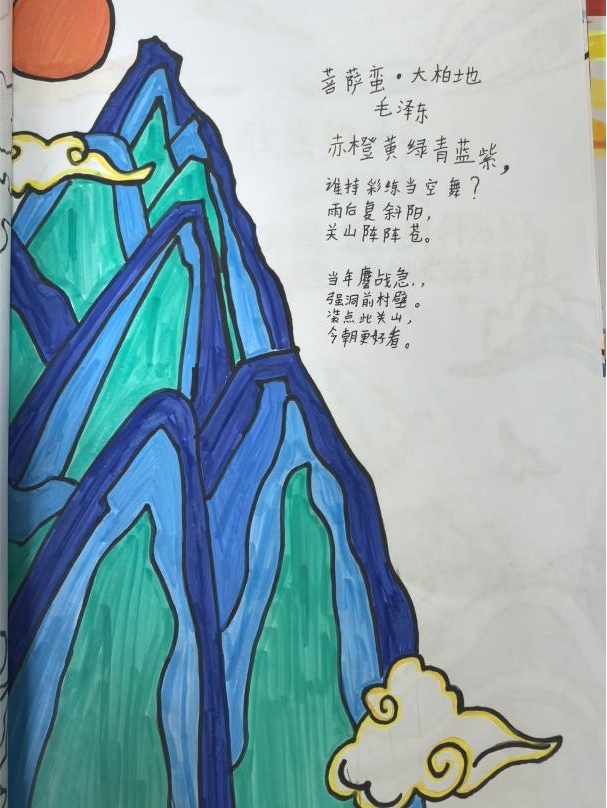 菩萨蛮·大柏地
毛泽东
赤橙黄绿青蓝紫,
谁持彩练当空舞?
雨后复斜阳,
关山阵阵苍。
当年鏖战急,,
强洞前村壁。
装点此关山,
今朝更好看。